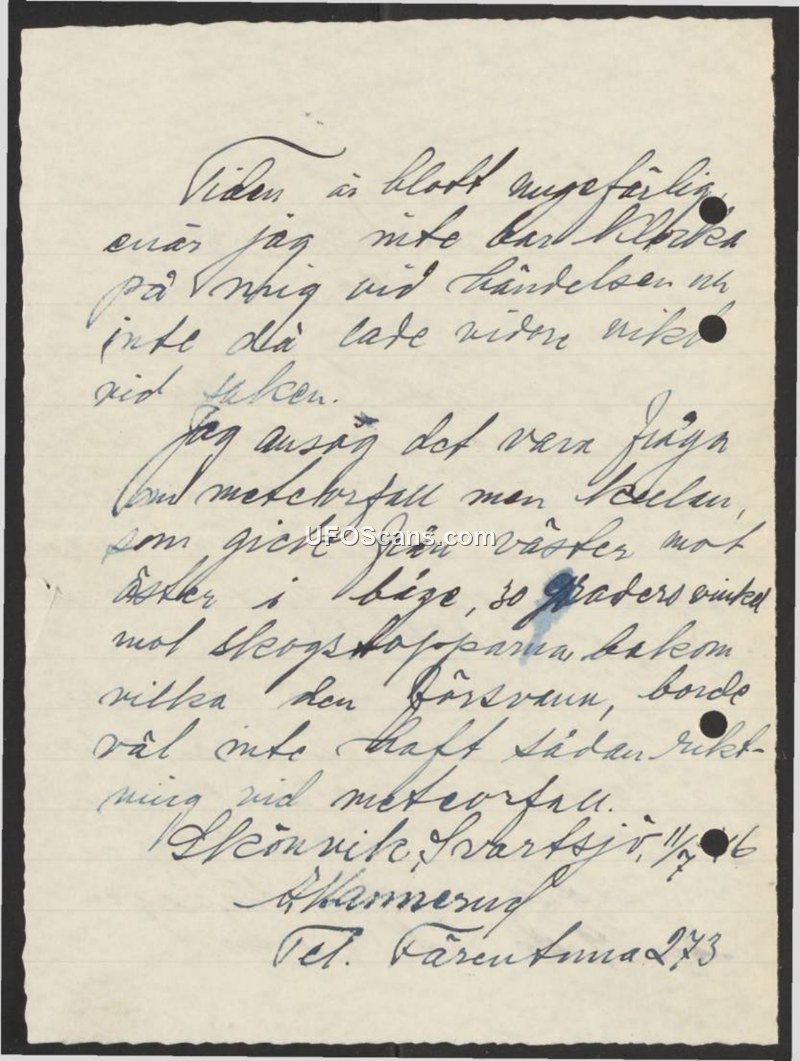 Tiden är blott ungefärlig,
enär jag inte bar klocka
på mig vid händelsen och
inte då lade vidare vikt
vid saken.
Jag ansåg det vara fråga
om meteorfall men kulan,
som gick från väster mot
öster i båge, 30 graders vinkel
mot skogstopparna bakom
vilka den försvann, borde
väl inte haft sådan rikt-
ning vid meteorfall.
Skönvik, Svartsjö, 11/7 46
Tel. Färentuna 273
UFOScans.com